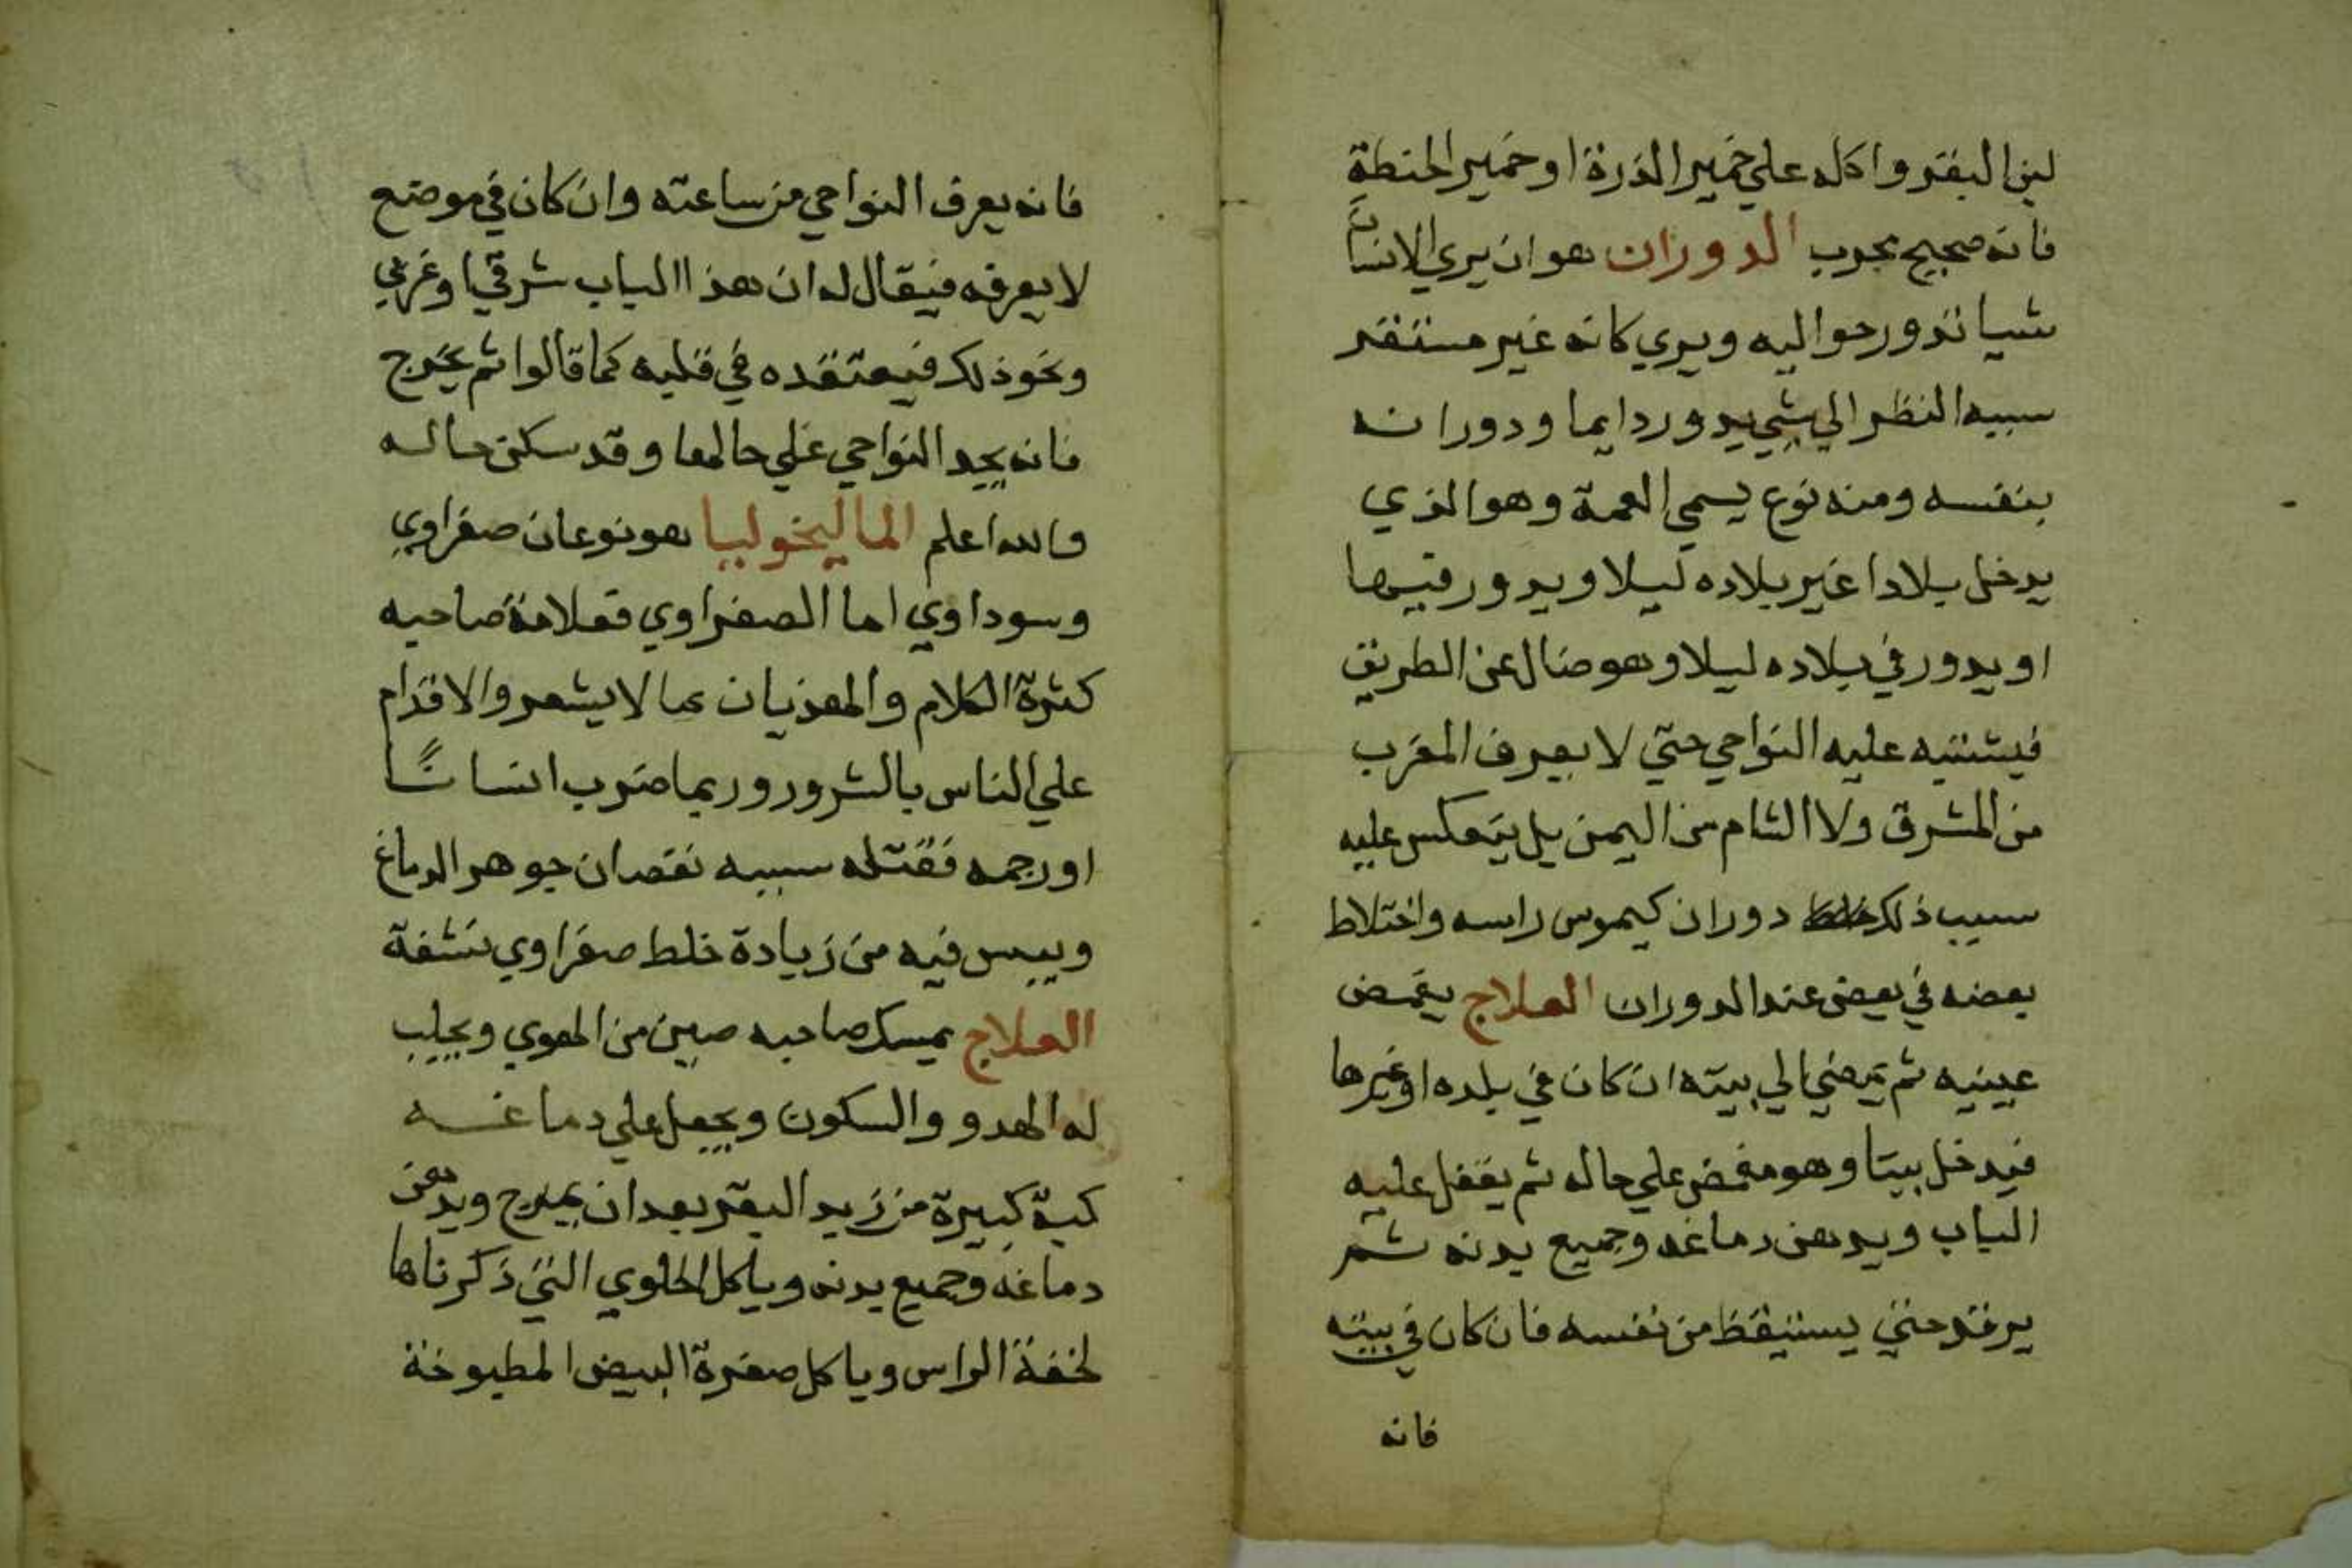 لبن البقر واكله علي خمير الذرة او خمير الحنطة
فانه صحيح مجرب الدوران هو ان يري الانسان
شيا تدور حواليه ويري كانه غير مستقر
سببه النظر الي شي يدور دايما ودورانه
بنفسه ومنه نوع يسمي العمة وهو الذي
يدخل بلادا غير بلاده ليلا ويدور فيها
او يدور في بلاده ليلا وهو ضال عن الطريق
فيشتبه عليه النواحي حتي لا يعرف المغرب
من المشرق ولا الشام من اليمن بل يتعكس عليه
سبب ذلك دوران كيموس راسه واختلاط
بعضه في بعض عند الدوران العلاج يغمض
عينيه ثم يمضي الي بيته ان كان في بلده او غيرها
فيدخل بيتا وهو مغمض علي حاله ثم يقفل عليه
الباب ويدهن دماغه وجميع بدنه ثم
يرقد حتي يستيقظ من نفسه فان كان في بيته
فانه
فانه يعرف النواحي من ساعته وان كان في موضع
لا يعرفه فيقال له ان هذا الباب شرقي او غربي
ونحو ذلك فيعتقده في قلبه كما قالوا ثم يخرج
فانه يجد النواحي علي حالها وقد سكن حاله
والله اعلم الماليخوليا هو نوعان صفراوي
وسوداوي اما الصفراوي فعلامة صاحبه
كثرة الكلام والهذيان بما لا يشعر والاقدام
علي الناس بالشرور وربما ضرب انسانًا
او رجمه فقتله سببه نقصان جوهر الدماغ
ويبس فيه من زيادة خلط صفراوي نشفة
العلاج يمسك صاحبه صين من الهوي ويجلب
له الهدو والسكون ويجعل علي دماغه
كبة كبيرة من زبد البقر بعد ان يمرج ويدهن
دماغه وجميع بدنه وياكل الحلوي التي ذكرناها
لخفة الراس وياكل صفرة البيض المطبوخة